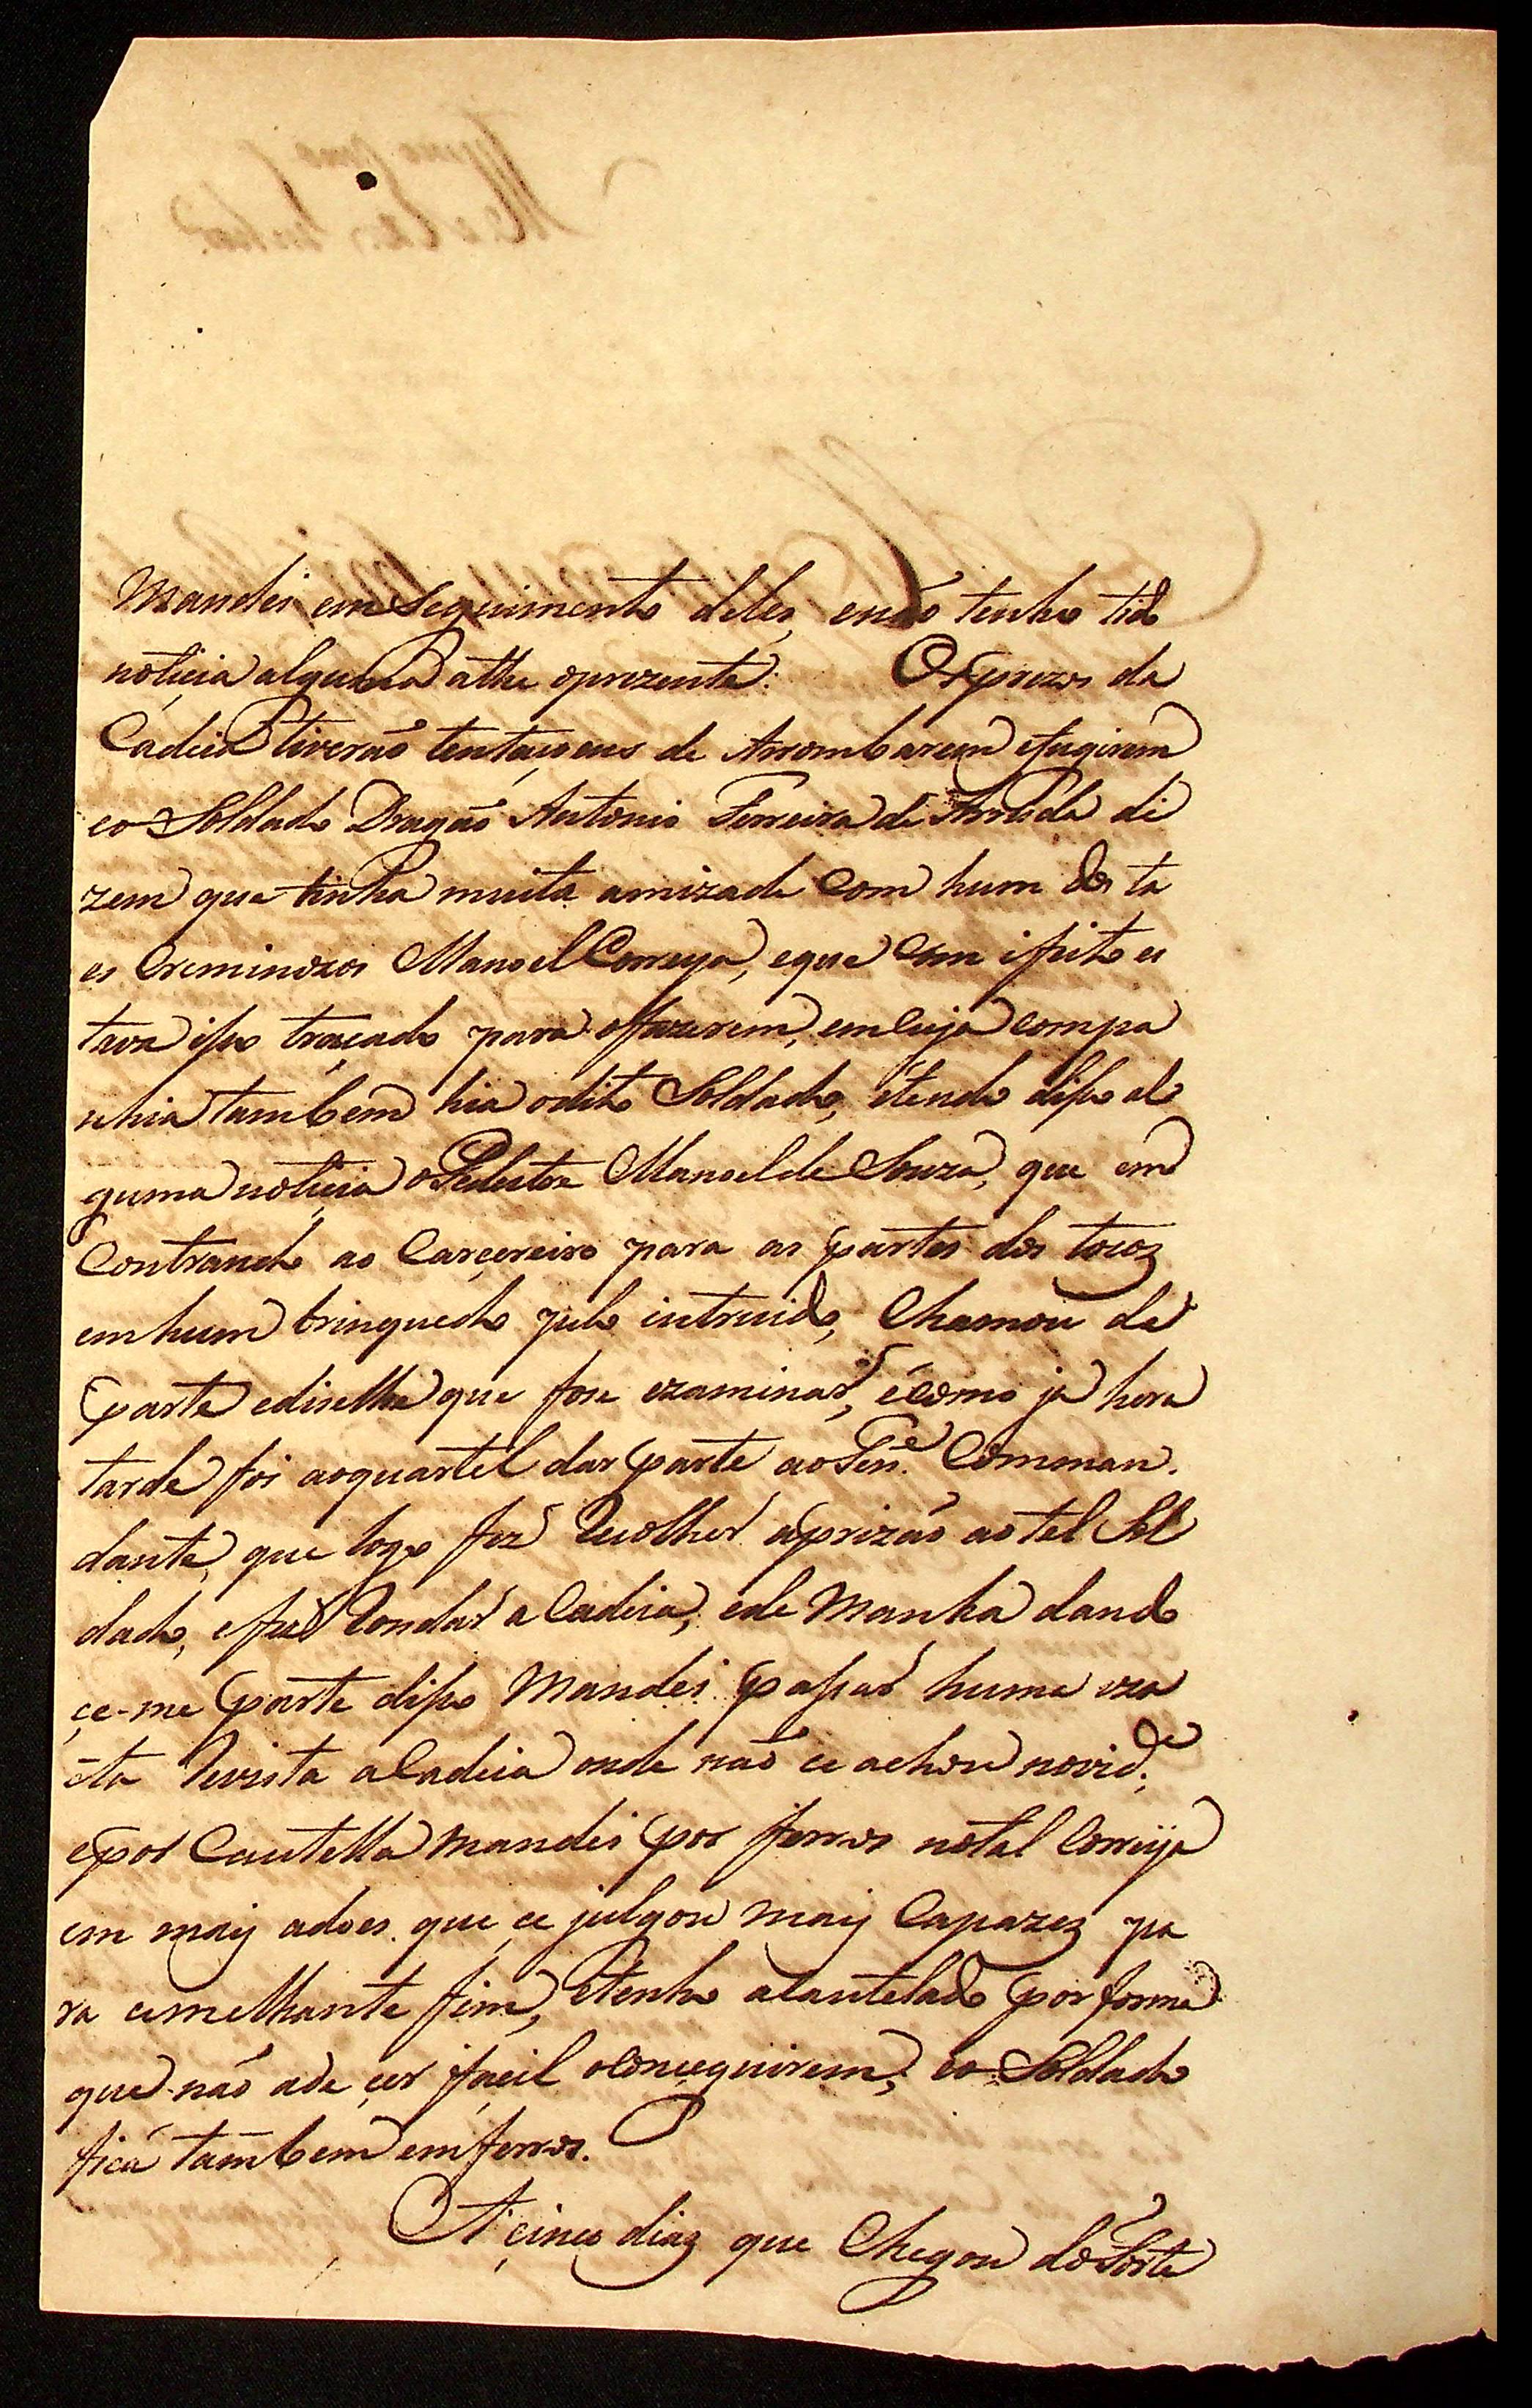 Mandei em Seguimento deles, enáo tenho tido
noticia alguma athe oprezente. Osprezos da
Cadeia tiveraõ tentaçoens de Arrombarem efugirem
eo Soldado Dragaõ Antonio Ferreira de Arruda di
zem que tinha muita amizade Com hum dos ta
es Creminozos Manoel Correya, eque Com efeito es
tava isso traçado para ofazerem, emCuja compa
nhia tambem hia odito Soldado, etendo disso al
guma noticia oPedestre Manoel de Souza, que em
Contrando ao Carçereiro para as partes dos tocos
emhum brinquedo pelo intruido, Chamou de
parte ediselhe que fose ezaminar, eComo ja hera
tarde foi aoquartel dar parte aoTen.e Comman.
dante, que logo fez Recolher aprizaõ ao tal Sol
dado, efes Rondar a Cadeia, ede Manha dando
çe-me parte disso Mandei passar huma eza
cta Revista aCadeia onde naõ ce achou novid.e
epor Cautella mandei por ferros notal Correya
em mais ados. que ce julgou mais Capazes pa
ra cemelhante fim, etenho aCautelado por forma
que naõ ade çer façil oConçeguirem, eo Soldado
fica tambem emferros.
A çinco dias que Chegou do Forte